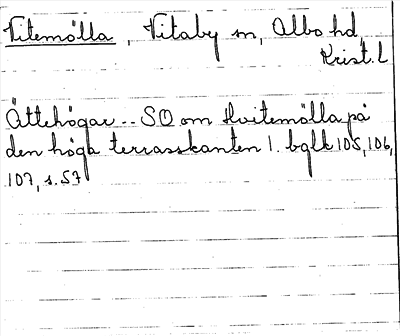 Vitemölla, Vitaby sn, Albo hd,
Krist. L
Ättehögar -- SO om Hvitemölla på
den höga terrasskanten l. bglk 105, 106,
107, s. 57